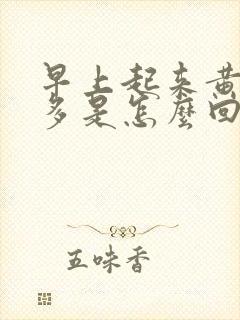 早上起来黄
多是怎麼回
五味香